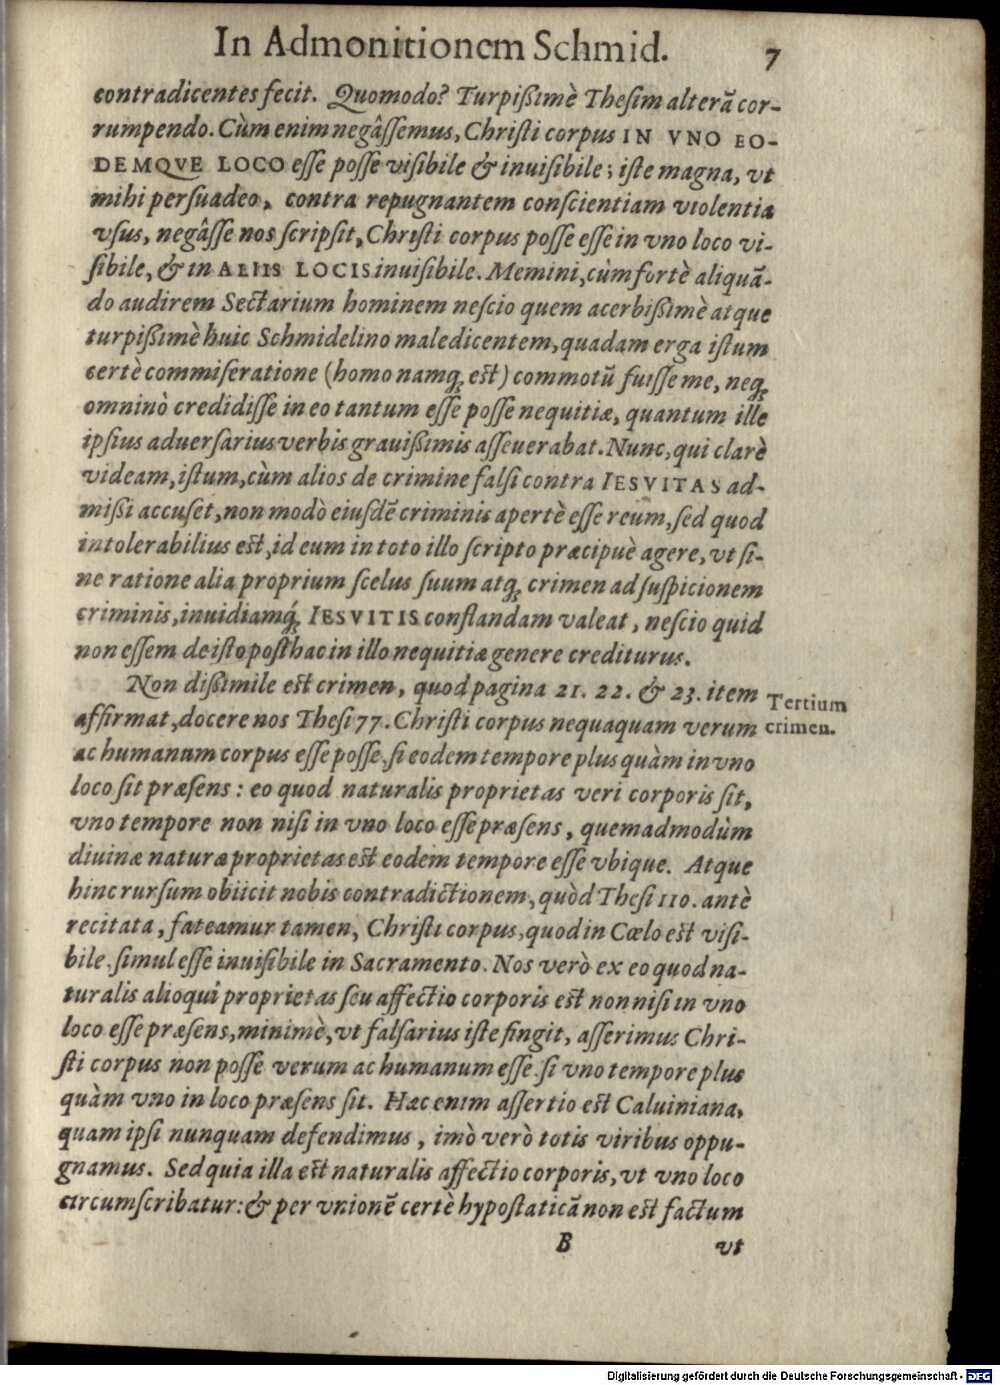 In Admonitionem Schmid. 7
contradicentes fecit. Quomodo? Turpißimè Thesim alterā cor-
rumpendo. Cùm enim negâssemus, Christi corpus IN VNO EO-
DEMQVE LOCO esse posse visibile & inuisibile; iste magna, vt
mihi persuadeo, contra repugnantem conscientiam violentia
vsus, negâsse nos scripsit, Christi corpus posse esse in vno loco vi-
sibile, & in ALIIS LOCIS inuisibile. Memini, cùm fortè aliquā-
do audirem Sectarium hominem nescio quem acerbißimè atque
turpißimè huic Schmidelino maledicentem, quadam erga istum
certè commiseratione (homo namq; est) commotū fuisse me, neq;
omninò credidisse in eo tantum esse posse nequitiæ, quantum ille
ipsius aduersarius verbis grauißimis asseuerabat. Nunc, qui clarè
videam, istum, cùm alios de crimine falsi contra IESVITAS ad-
mißi accuset, non modò eiusdē criminis apertè esse reum, sed quod
intolerabilius est, id eum in toto illo scripto præcipuè agere, vt si-
ne ratione alia proprium scelus suum atq; crimen ad suspicionem
criminis, inuidiamq́; IESVITIS conflandam valeat, nescio quid
non essem de isto posthac in illo nequitiæ genere crediturus.
Non dißimile est crimen, quod pagina 21. 22. & 23. item
affirmat, docere nos Thesi 77. Christi corpus nequaquam verum
ac humanum corpus esse posse, si eodem tempore plus quàm in vno
loco sit præsens: eo quod naturalis proprietas veri corporis sit,
vno tempore non nisi in vno loco esse præsens, quemadmodùm
diuinæ naturæ proprietas est eodem tempore esse vbique. Atque
hinc rursum obiicit nobis contradictionem, quòd Thesi 110. antè
recitata, fateamur tamen, Christi corpus, quod in Cœlo est visi-
bile, simul esse inuisibile in Sacramento. Nos verò ex eo quod na-
turalis alioqui proprietas seu affectio corporis est non nisi in vno
loco esse præsens, minimè, vt falsarius iste fingit, asserimus Chri-
sti corpus non posse verum ac humanum esse, si vno tempore plus
quàm vno in loco præsens sit. Hæc enim assertio est Caluiniana,
quam ipsi nunquam defendimus, imò verò totis viribus oppu-
gnamus. Sed quia illa est naturalis affectio corporis, vt vno loco
circumscribatur: & per vnionē certè hypostaticā non est factum
B vt
Tertium
crimen.
Digitalisierung gefördert durch die Deutsche Forschungsgemeinschaft - DFG